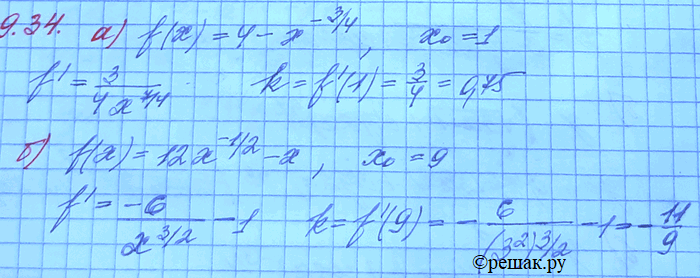 9.34. а) f(x) = 4 - x^(-3/4), x₀ = 1
f' = 3/(4x^(7/4)) k = f'(1) = 3/4 = 0,75
б) f(x) = 12x^(-1/2) - x, x₀ = 9
f' = -6/(x^(3/2)) - 1 k = f'(9) = - 6/((3²)^(3/2)) - 1 = - 11/9
©решак.ру